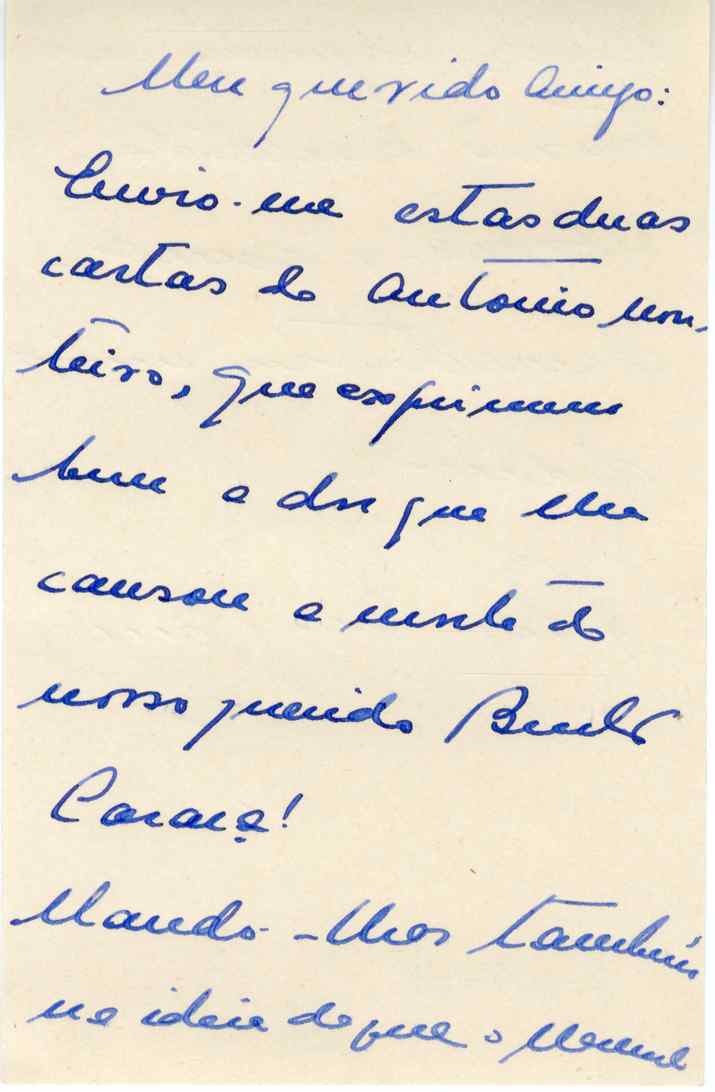 Meu querido Amigo:
Envio-me estas duas
cartas do António Mon-
teiro, que exprimem
bem a dor que lhe
causou a morte do
nosso querido Bento
Caraça!
Mando-lhas também
na ideia de que o